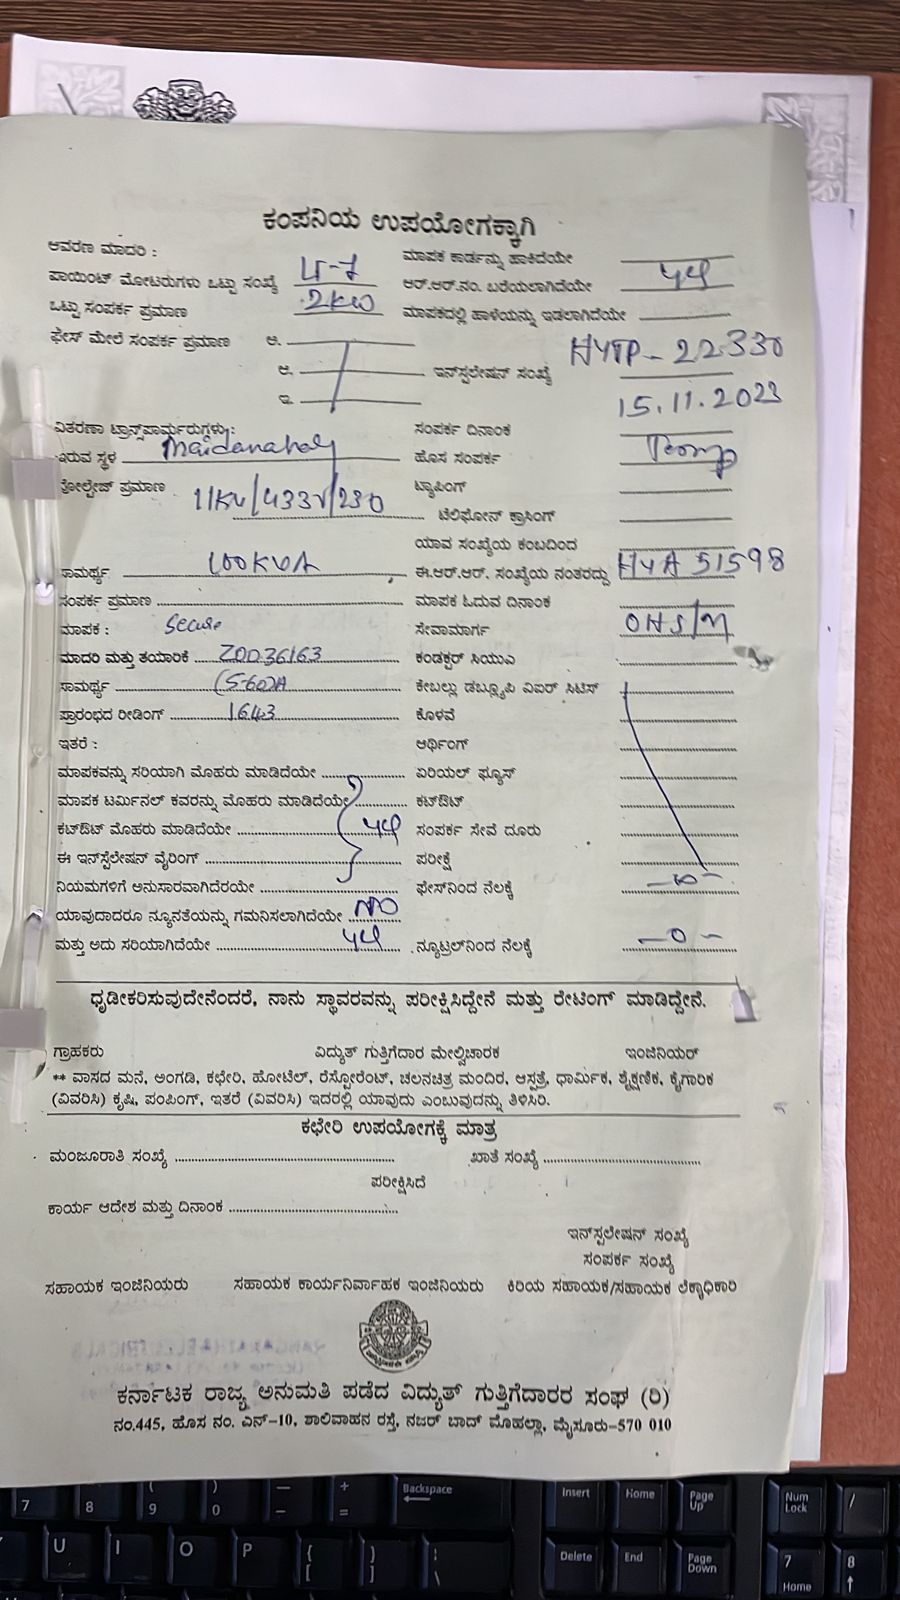 ಕಂಪನಿಯ ಉಪಯೋಗಕ್ಕಾಗಿ
ಆವರಣ ಮಾದರಿ : ಮಾಪಕ ಕಾರ್ಡನ್ನು ಹಾಕಿದೆಯೇ
ಪಾಯಿಂಟ್ ಮೋಟರುಗಳು ಒಟ್ಟು ಸಂಖ್ಯೆ ಆರ್.ಆರ್.ನಂ. ಬರೆಯಲಾಗಿದೆಯೇ
ಒಟ್ಟು ಸಂಪರ್ಕ ಪ್ರಮಾಣ 2KW ಮಾಪಕದಲ್ಲಿ ಹಾಳೆಯನ್ನು ಇಡಲಾಗಿದೆಯೇ
ಫೇಸ್ ಮೇಲೆ ಸಂಪರ್ಕ ಪ್ರಮಾಣ ಅ.
ಆ. ಇನ್ಸ್ಟಲೇಷನ್ ಸಂಖ್ಯೆ HYTP-22330
ಇ.
15.11.2023
ವಿತರಣಾ ಟ್ರಾನ್ಸ್‌ಫಾರ್ಮರುಗಳು: ಸಂಪರ್ಕ ದಿನಾಂಕ
ಇರುವ ಸ್ಥಳ Maidanahaly ಹೊಸ ಸಂಪರ್ಕ Temp
ವೋಲ್ಟೇಜ್ ಪ್ರಮಾಣ 11KV/433V/230 ಟ್ಯಾಪಿಂಗ್
ಟೆಲಿಫೋನ್ ಕ್ರಾಸಿಂಗ್
ಯಾವ ಸಂಖ್ಯೆಯ ಕಂಬದಿಂದ
ಸಾಮರ್ಥ್ಯ 100KVA ಈ.ಆರ್.ಆರ್. ಸಂಖ್ಯೆಯ ನಂತರದ್ದು HYA 51598
ಸಂಪರ್ಕ ಪ್ರಮಾಣ ಮಾಪಕ ಓದುವ ದಿನಾಂಕ
ಮಾಪಕ : Secure ಸೇವಾಮಾರ್ಗ OHS/M
ಮಾದರಿ ಮತ್ತು ತಯಾರಿಕೆ Z0036163 ಕಂಡಕ್ಟರ್ ಸಿಯುಎ
ಸಾಮರ್ಥ್ಯ (5-60)A ಕೇಬಲ್ಲು ಡಬ್ಲ್ಯೂಪಿ ಎಐಆರ್ ಸಿಟಿಸ್
ಪ್ರಾರಂಭದ ರೀಡಿಂಗ್ 1643 ಕೊಳವೆ
ಇತರೆ : ಆರ್ಥಿಂಗ್
ಮಾಪಕವನ್ನು ಸರಿಯಾಗಿ ಮೊಹರು ಮಾಡಿದೆಯೇ ಏರಿಯಲ್ ಫ್ಯೂಸ್
ಮಾಪಕ ಟರ್ಮಿನಲ್ ಕವರನ್ನು ಮೊಹರು ಮಾಡಿದೆಯೇ ಕಟ್‌ಔಟ್
ಕಟ್‌ಔಟ್ ಮೊಹರು ಮಾಡಿದೆಯೇ ಸಂಪರ್ಕ ಸೇವೆ ದೂರು
ಈ ಇನ್ಸ್ಟಲೇಷನ್ ವೈರಿಂಗ್ ಪರೀಕ್ಷೆ
ನಿಯಮಗಳಿಗೆ ಅನುಸಾರವಾಗಿದೆರಯೇ ಫೇಸ್‌ನಿಂದ ನೆಲಕ್ಕೆ
ಯಾವುದಾದರೂ ನ್ಯೂನತೆಯನ್ನು ಗಮನಿಸಲಾಗಿದೆಯೇ NO
ಮತ್ತು ಅದು ಸರಿಯಾಗಿದೆಯೇ ನ್ಯೂಟ್ರಲ್‌ನಿಂದ ನೆಲಕ್ಕೆ —0—
ಧೃಡೀಕರಿಸುವುದೇನೆಂದರೆ, ನಾನು ಸ್ಥಾವರವನ್ನು ಪರೀಕ್ಷಿಸಿದ್ದೇನೆ ಮತ್ತು ರೇಟಿಂಗ್ ಮಾಡಿದ್ದೇನೆ.
ಗ್ರಾಹಕರು ವಿದ್ಯುತ್ ಗುತ್ತಿಗೆದಾರ ಮೇಲ್ವಿಚಾರಕ ಇಂಜಿನಿಯರ್
** ವಾಸದ ಮನೆ, ಅಂಗಡಿ, ಕಛೇರಿ, ಹೋಟೆಲ್, ರೆಸ್ಟೋರೆಂಟ್, ಚಲನಚಿತ್ರ ಮಂದಿರ, ಆಸ್ಪತ್ರೆ, ಧಾರ್ಮಿಕ, ಶೈಕ್ಷಣಿಕ, ಕೈಗಾರಿಕ
(ವಿವರಿಸಿ) ಕೃಷಿ, ಪಂಪಿಂಗ್, ಇತರೆ (ವಿವರಿಸಿ) ಇದರಲ್ಲಿ ಯಾವುದು ಎಂಬುವುದನ್ನು ತಿಳಿಸಿರಿ.
ಕಛೇರಿ ಉಪಯೋಗಕ್ಕೆ ಮಾತ್ರ
ಮಂಜೂರಾತಿ ಸಂಖ್ಯೆ ಖಾತೆ ಸಂಖ್ಯೆ
ಪರೀಕ್ಷಿಸಿದೆ
ಕಾರ್ಯ ಆದೇಶ ಮತ್ತು ದಿನಾಂಕ
ಇನ್ಸ್ಟಲೇಷನ್ ಸಂಖ್ಯೆ
ಸಂಪರ್ಕ ಸಂಖ್ಯೆ
ಸಹಾಯಕ ಇಂಜಿನಿಯರು ಸಹಾಯಕ ಕಾರ್ಯನಿರ್ವಾಹಕ ಇಂಜಿನಿಯರು ಕಿರಿಯ ಸಹಾಯಕ/ಸಹಾಯಕ ಲೆಕ್ಕಾಧಿಕಾರಿ
ಕರ್ನಾಟಕ ರಾಜ್ಯ ಅನುಮತಿ ಪಡೆದ ವಿದ್ಯುತ್ ಗುತ್ತಿಗೆದಾರರ ಸಂಘ (ರಿ)
ನಂ.445, ಹೊಸ ನಂ. ಎನ್-10, ಶಾಲಿವಾಹನ ರಸ್ತೆ, ನಜರ್ ಬಾದ್ ಮೊಹಲ್ಲಾ, ಮೈಸೂರು-570 010
Backspace Insert Home Page Up Num Lock /
7 8 9 0
U I O P Delete End Page Down 7 Home 8